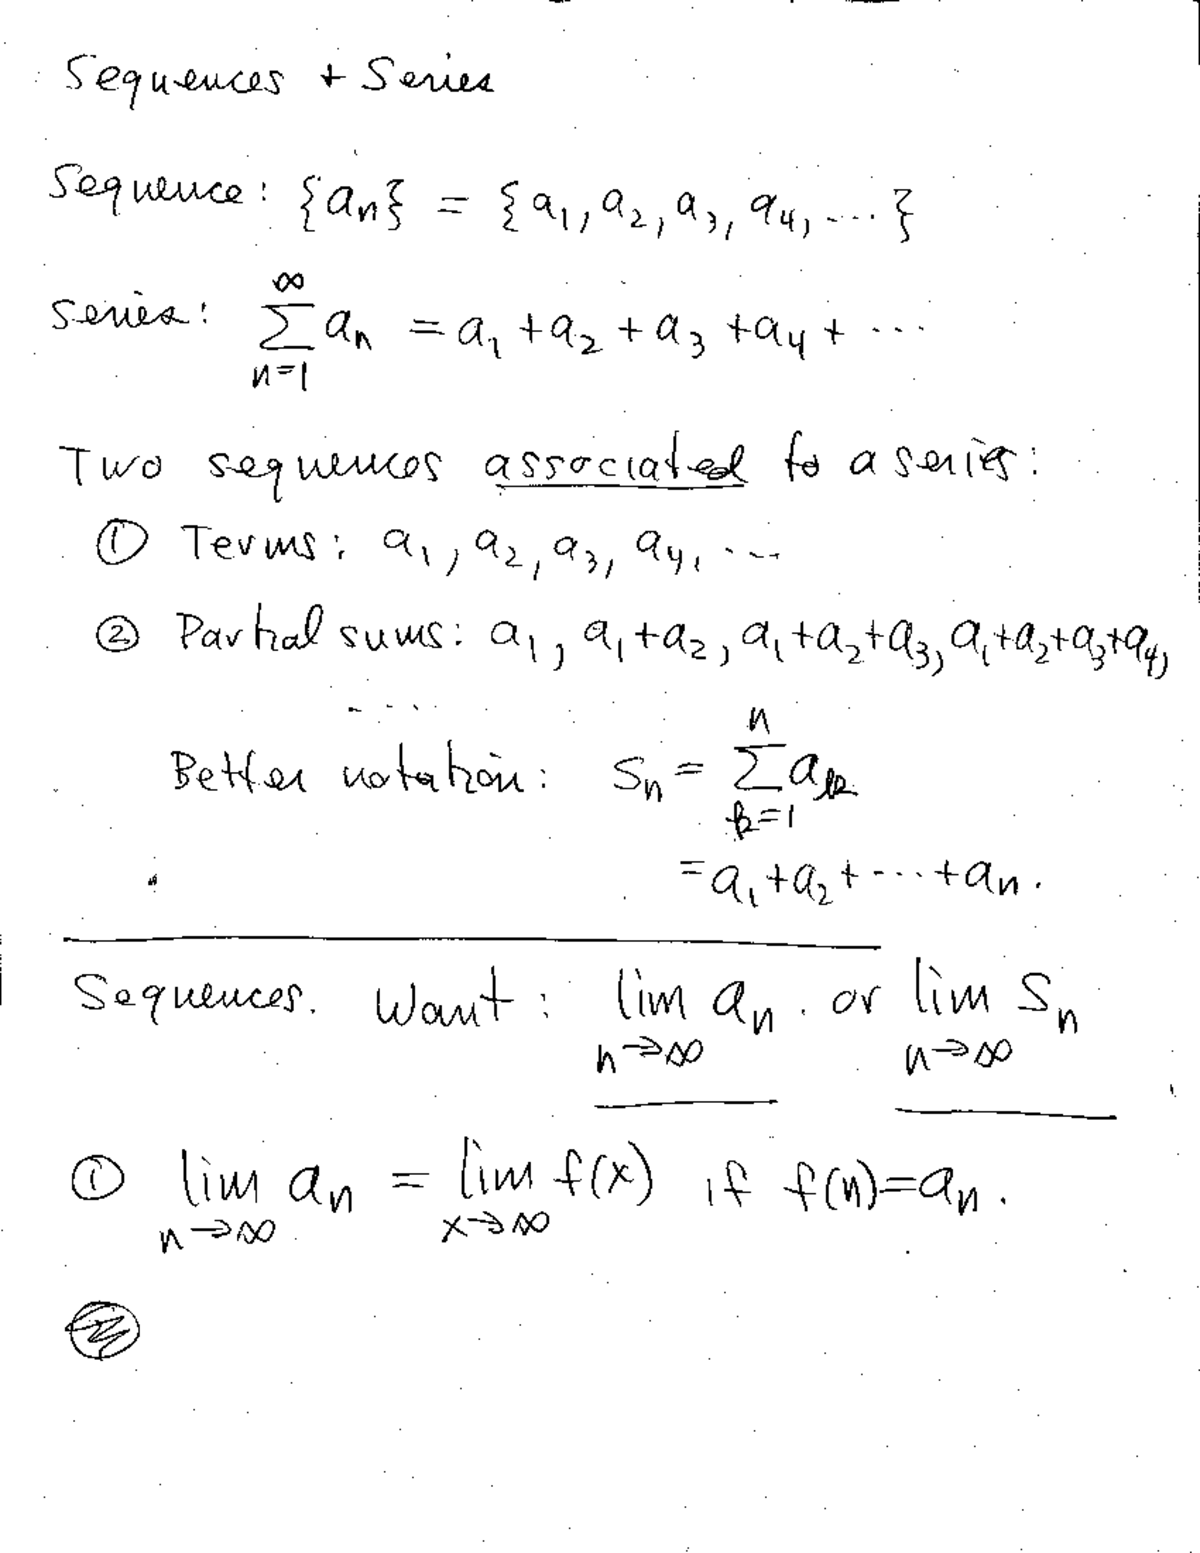 Sequences + Series
Sequence: {aₙ} = {a₁, a₂, a₃, a₄, ....}
Series: ∞∑n=1 aₙ = a₁ + a₂ + a₃ + a₄ + ...
Two sequences associated to a series:
① Terms: a₁, a₂, a₃, a₄, ...
② Partial sums: a₁, a₁+a₂, a₁+a₂+a₃, a₁+a₂+a₃+a₄,
....
Better notation: sₙ = n∑k=1 aₖ
= a₁+a₂+...+aₙ.
Sequences. Want: lim n→∞ aₙ. or lim n→∞ sₙ
① lim n→∞ aₙ = lim x→∞ f(x) if f(n)=aₙ.